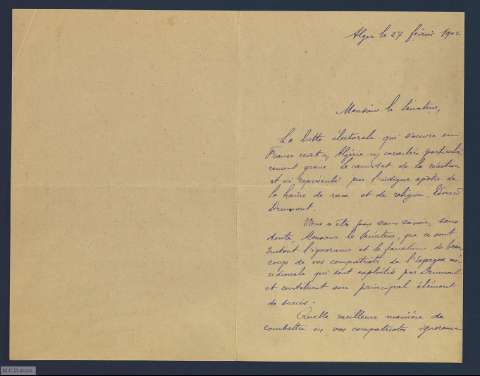 Alger le 27 février 1902
Monsieur le Sénateur,
La lutte électorale qui s'ouvre en
France revêt en Algérie un caractère particuliè
rement grave le candidat de la réaction
est ici représenté par l'indigne apôtre de
la haine de race et de religion, Edouard
Drumont.
Vous n'êtes pas sans savoir, sans
doute, Monsieur le Sénateur, que ce sont
surtout l'ignorance et le fanatisme de beau
coup de vos compatriotes de l'Espagne mé
ridionale qui sont exploités par Drumont
et constituent son principal élément
de succès.
Quelle meilleure manière de
combattre vos compatriotes ignorance